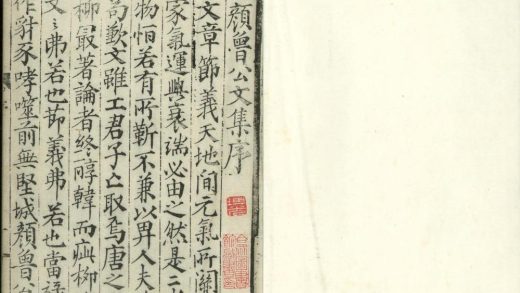 顏魯公文集序
文章節義天地間元氣所關
家氣運興衰端必由之然是二
物恒若有所靳不兼以畀人夫
苟歉文雖工君子亡取焉唐之
柳最著論者終醇韓而疵柳
文之弗若也節義弗若也當
作豺豕哮噬前無堅城顏魯